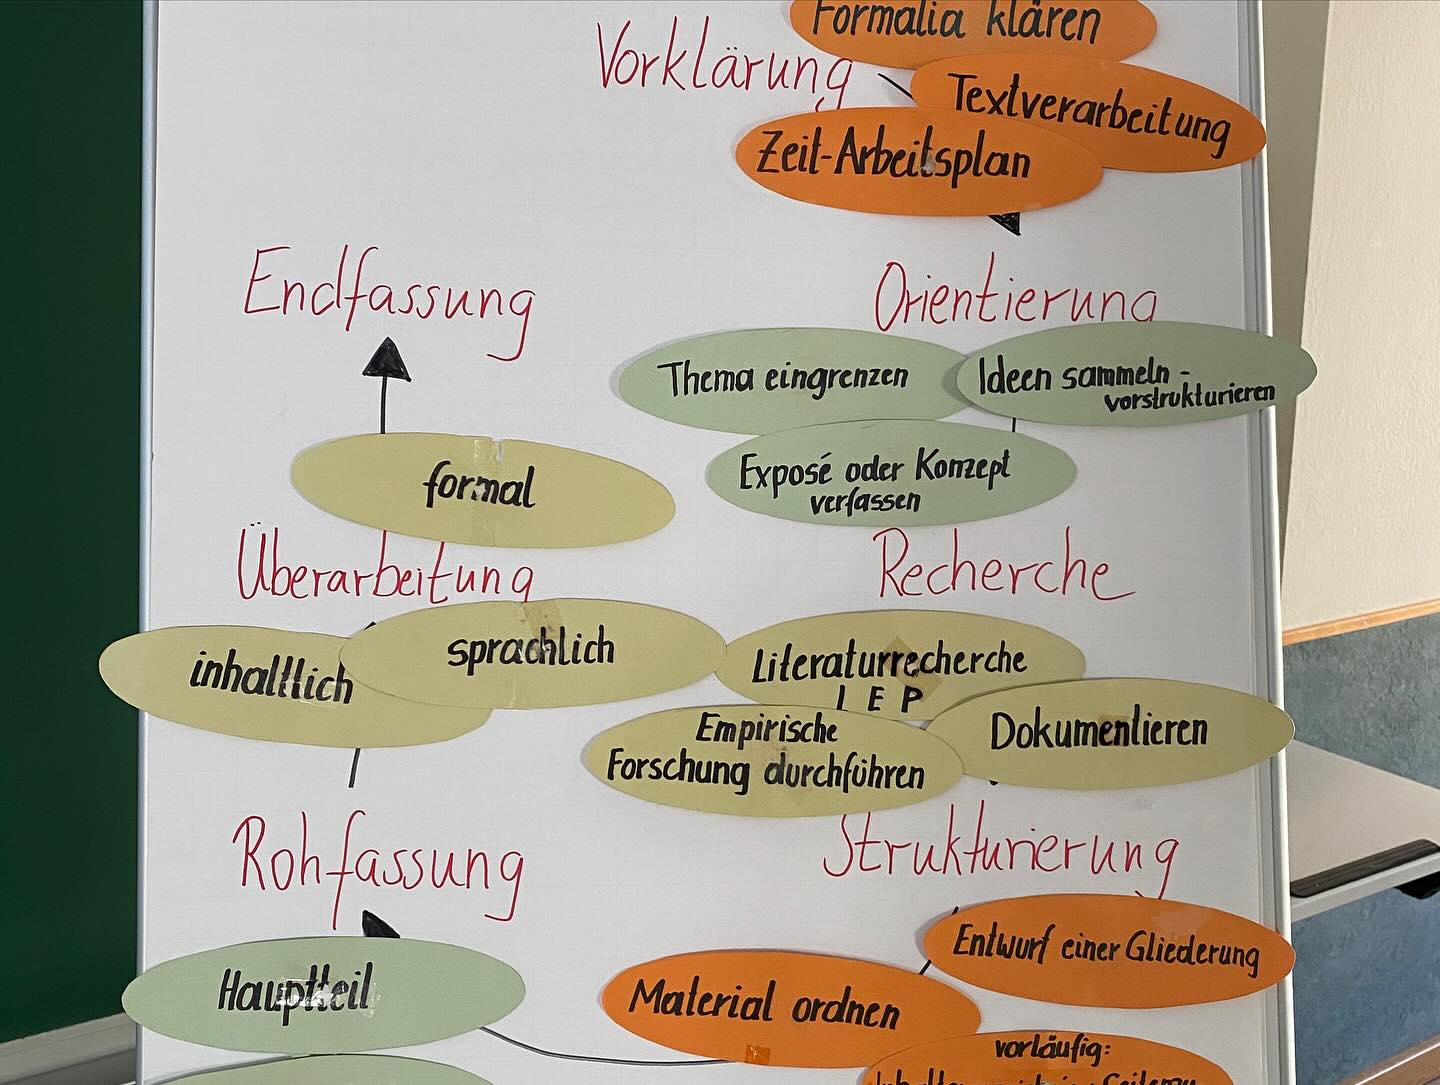 Formalia klären
Vorklärung
Textverarbeitung
Zeit-Arbeitsplan
Orientierung
Thema eingrenzen
Ideen sammeln -
vorstrukturieren
Exposé oder Konzept
verfassen
Recherche
Literaturrecherche
I E P
Empirische
Forschung durchführen
Dokumentieren
Strukturierung
Entwurf einer Gliederung
Material ordnen
vorläufig:
Rohfassung
Hauptteil
Überarbeitung
inhaltlich
sprachlich
formal
Endfassung